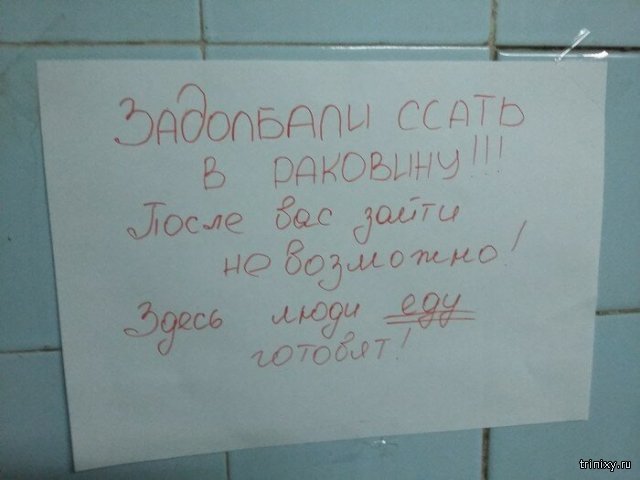 ЗАДОЛБАЛИ ССАТЬ
В РАКОВИНУ!!!
После вас зайти
не возможно!
Здесь люди еду
готовят!
trinixy.ru